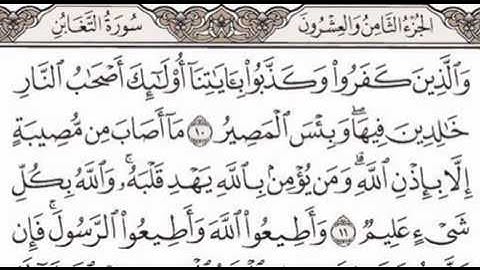 الجزء الثامن والعشرون
سورة التغابن
وَالَّذِينَ كَفَرُوا۟ وَكَذَّبُوا۟ بِـَٔايَٰتِنَآ أُو۟لَٰٓئِكَ أَصْحَٰبُ النَّارِ
خَٰلِدِينَ فِيهَا ۖ وَبِئْسَ الْمَصِيرُ ١٠ مَآ أَصَابَ مِن مُّصِيبَةٍ
إِلَّا بِإِذْنِ اللَّهِ ۗ وَمَن يُؤْمِنۢ بِاللَّهِ يَهْدِ قَلْبَهُۥ ۚ وَاللَّهُ بِكُلِّ
شَىْءٍ عَلِيمٌ ١١ وَأَطِيعُوا۟ اللَّهَ وَأَطِيعُوا۟ الرَّسُولَ ۚ فَإِن